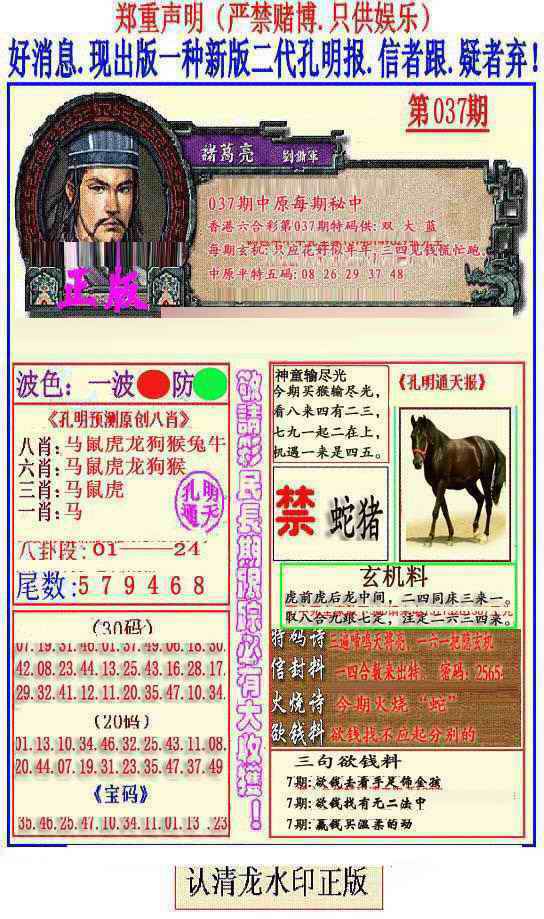 郑重声明（严禁赌博.只供娱乐）
好消息.现出版一种新版二代孔明报.信者跟.疑者弃!
第037期
諸葛亮
037期中原每期秘中
香港六合彩第037期特码供: 双 大 蓝
每期玄机: 只应花好似半年 三四见钱慌忙跑.
中原平特五码: 08 26 29 37 48
正版
波色: 一波 防
《孔明预测原创八肖》
八肖: 马鼠虎龙狗猴兔牛
六肖: 马鼠虎龙狗猴
三肖: 马鼠虎
一肖: 马
孔明
通天
八卦段: 01——24
尾数: 579468
敬請彩民長期跟踪必有大收獲!
神童输尽光
今期买猴输尽光,
看八来四有二三,
七九一起二在上,
机遇一来是四五。
《孔明通天报》
禁 蛇猪
玄机料
虎前虎后龙中间, 二四同床三来一。
(30码)
07.19.31.46.01.37.49.06.18.30.
42.08.23.44.13.25.43.16.28.17.
29.32.41.12.11.20.35.47.10.34.
(20码)
01.13.10.34.46.32.25.43.11.08.
20.44.07.19.31.23.35.47.37.49
《宝码》
35.46.25.47.10.34.11.01.13 .23
特码诗 三通啼鸣天将亮, 一六一把防玄机
信封料 一四合数来出特. 密码: 2565.
火烧诗 今期火烧“蛇”
欲钱料 欲钱找不应起分别的
三句欲钱料
7期: 欲钱去看手足饰金孩
7期: 欲钱找有无二法中
7期: 赢钱买温柔的动
认清龙水印正版